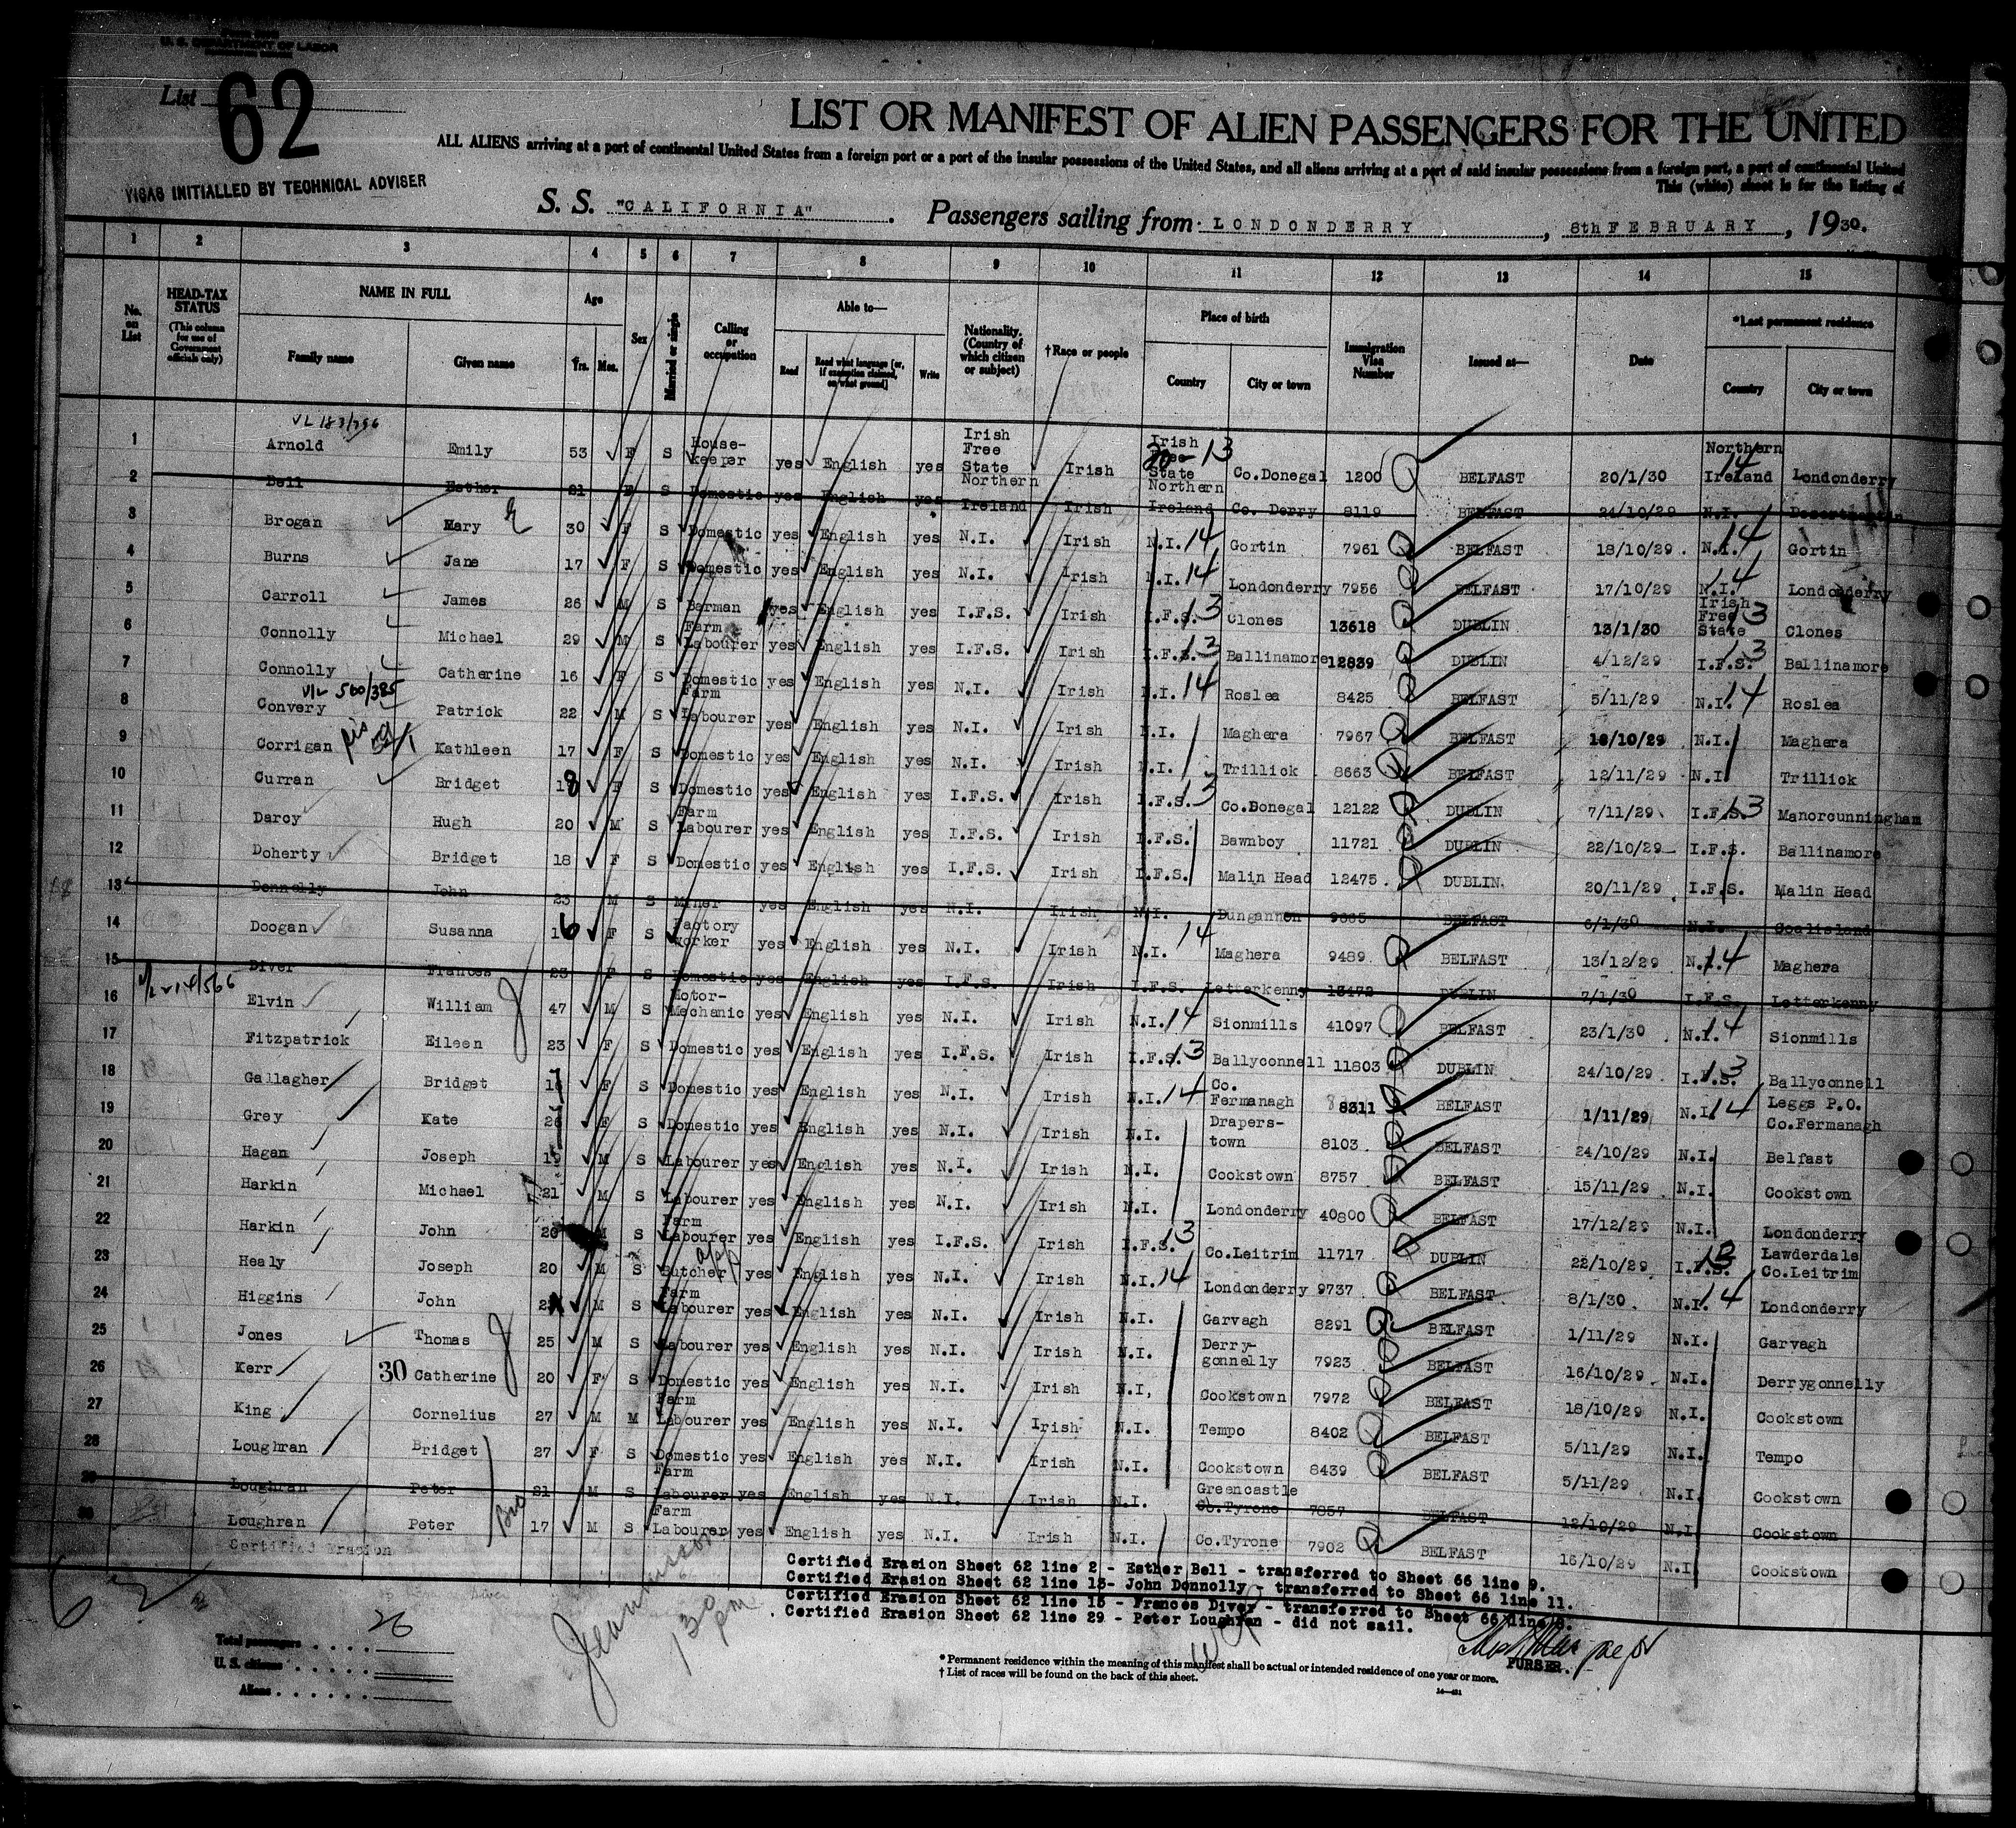 U. S. DEPARTMENT OF LABOR
List 62
VISAS INITIALLED BY TECHNICAL ADVISER
LIST OR MANIFEST OF ALIEN PASSENGERS FOR THE UNITED
ALL ALIENS arriving at a port of continental United States from a foreign port or a port of the insular possessions of the United States, and all aliens arriving at a port of said insular possessions from a foreign port, a port of continental United
This (white) sheet is for the listing of
S. S. "CALIFORNIA" . Passengers sailing from LONDONDERRY , 8th FEBRUARY , 1930.
1 2 3 4 5 6 7 8 9 10 11 12 13 14 15
No. on List
HEAD-TAX STATUS (This column for use of Government officials only)
NAME IN FULL Family name Given name
Age Yrs. Mos.
Sex
Married or single
Calling or occupation
Able to— Read Read what language [or, if exemption claimed, on what ground] Write
Nationality. (Country of which citizen or subject)
†Race or people
Place of birth Country City or town
Immigration Visa Number
Issued at—
Date
*Last permanent residence Country City or town
1 Arnold Emily 53 F S House-keeper yes English yes Irish Free State Irish Irish Free State 13 Co.Donegal 1200 BELFAST 20/1/30 Northern Ireland 14 Londonderry
2 Bell Esther 21 F S Domestic yes English yes Northern Ireland Irish Northern Ireland Co. Derry 8119 BELFAST 24/10/29 N.I.
3 Brogan Mary 30 F S Domestic yes English yes N.I. Irish N.I. 14 Gortin 7961 BELFAST 18/10/29 N.I. 14 Gortin
4 Burns Jane 17 F S Domestic yes English yes N.I. Irish N.I. 14 Londonderry 7956 BELFAST 17/10/29 N.I. 14 Londonderry
5 Carroll James 26 M S Barman yes English yes I.F.S. Irish I.F.S. 13 Clones 13618 DUBLIN 13/1/30 Irish Free State 13 Clones
6 Connolly Michael 29 M S Farm Labourer yes English yes I.F.S. Irish I.F.S. 13 Ballinamore 12839 DUBLIN 4/12/29 I.F.S. 13 Ballinamore
7 Connolly Catherine 16 F S Domestic yes English yes N.I. Irish N.I. 14 Roslea 8425 BELFAST 5/11/29 N.I. 14 Roslea
8 Convery Patrick 22 M S Farm Labourer yes English yes N.I. Irish N.I. Maghera 7967 BELFAST 18/10/29 N.I. Maghera
9 Corrigan Kathleen 17 F S Domestic yes English yes N.I. Irish N.I. Trillick 8663 BELFAST 12/11/29 N.I. Trillick
10 Curran Bridget 18 F S Domestic yes English yes I.F.S. Irish I.F.S. 13 Co.Donegal 12122 DUBLIN 7/11/29 I.F.S. 13 Manorcunningham
11 Darcy Hugh 20 M S Farm Labourer yes English yes I.F.S. Irish I.F.S. Bawnboy 11721 DUBLIN 22/10/29 I.F.S. Ballinamore
12 Doherty Bridget 18 F S Domestic yes English yes I.F.S. Irish I.F.S. Malin Head 12475 DUBLIN. 20/11/29 I.F.S. Malin Head
13 Donnolly John 23 M S Miner yes English yes N.I. Irish N.I. Dungannon BELFAST 6/1/30 N.I. Coalisland
14 Doogan Susanna 16 F S Factory worker yes English yes N.I. Irish N.I. 14 Maghera 9489 BELFAST 13/12/29 N.I. 14 Maghera
15 Diver Frances 23 F S Domestic yes English yes I.F.S. Irish I.F.S. Letterkenny 13472 DUBLIN 7/1/30 I.F.S. Letterkenny
16 Elvin William 47 M S Motor-Mechanic yes English yes N.I. Irish N.I. 14 Sionmills 41097 BELFAST 23/1/30 N.I. 14 Sionmills
17 Fitzpatrick Eileen 23 F S Domestic yes English yes I.F.S. Irish I.F.S. 13 Ballyconnell 11803 DUBLIN 24/10/29 I.F.S. 13 Ballyconnell
18 Gallagher Bridget F S Domestic yes English yes N.I. Irish N.I. 14 Co. Fermanagh 8311 BELFAST 1/11/29 N.I. 14 Leggs P.O. Co.Fermanagh
19 Grey Kate 26 F S Domestic yes English yes N.I. Irish N.I. Drapers-town 8103 BELFAST 24/10/29 N.I. Belfast
20 Hagan Joseph 19 M S Labourer yes English yes N.I. Irish N.I. Cookstown 8757 BELFAST 15/11/29 N.I. Cookstown
21 Harkin Michael 21 M S Labourer yes English yes N.I. Irish N.I. Londonderry 40800 BELFAST 17/12/29 N.I. Londonderry
22 Harkin John 20 M S Farm Labourer yes English yes I.F.S. Irish I.F.S. 13 Co.Leitrim 11717 DUBLIN 22/10/29 I.F.S. 13 Lawderdale Co.Leitrim
23 Healy Joseph 20 M S Butcher yes English yes N.I. Irish N.I. 14 Londonderry 9737 BELFAST 8/1/30 N.I. 14 Londonderry
24 Higgins John M S Farm Labourer yes English yes N.I. Irish N.I. Garvagh 8291 BELFAST 1/11/29 N.I. Garvagh
25 Jones Thomas 25 M S Labourer yes English yes N.I. Irish N.I. Derry-gonnelly 7923 BELFAST 16/10/29 N.I. Derrygonnelly
26 Kerr 30 Catherine 20 F S Domestic yes English yes N.I. Irish N.I, Cookstown 7972 BELFAST 18/10/29 N.I. Cookstown
27 King Cornelius 27 M M Farm Labourer yes English yes N.I. Irish N.I. Tempo 8402 BELFAST 5/11/29 N.I. Tempo
28 Loughran Bridget 27 F S Domestic yes English yes N.I. Irish N.I. Cookstown 8439 BELFAST 5/11/29 N.I. Cookstown
29 Loughran Peter 21 M S Farm Labourer yes English yes N.I. Irish N.I. Greencastle Co.Tyrone 7857 BELFAST 12/10/29 N.I. Cookstown
30 Loughran Peter Bro 17 M S Farm Labourer yes English yes N.I. Irish N.I. Co.Tyrone 7902 BELFAST 16/10/29 N.I. Cookstown
Certified Erasion
Certified Erasion Sheet 62 line 2 - Esther Bell - transferred to Sheet 66 line 9.
Certified Erasion Sheet 62 line 13- John Donnolly - transferred to Sheet 66 line 11.
Certified Erasion Sheet 62 line 15 - Frances Diver - transferred to Sheet 66 line
Certified Erasion Sheet 62 line 29 - Peter Loughran - did not sail.
130 pm
PURSER.
Total passengers 26
U. S. citizens
Aliens
* Permanent residence within the meaning of this manifest shall be actual or intended residence of one year or more.
† List of races will be found on the back of this sheet.